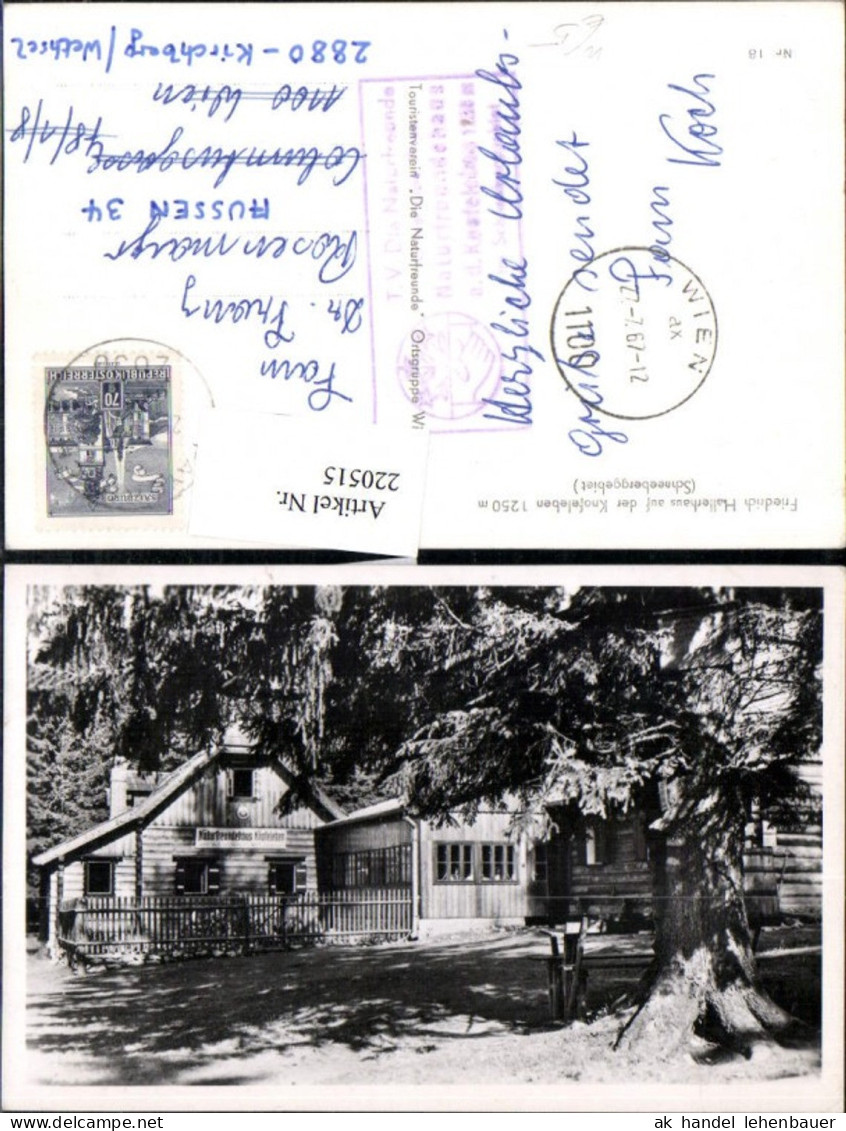 Nr 18
Herzliche Urlaubs-
grüße sendet
Fam Koch
WIEN
ax
27.-7.67-12
1100
T.V. Die Naturfreunde
Naturfreundehaus
Touristenverein "Die Naturfreunde" Ortsgruppe Wi
Fam
Dr. Franz
Rosenmayr
AUSSEN 34
Columbusgasse 48/1/8
1100 Wien
2880 - Kirchberg/Wechsel
REPUBLIK ÖSTERREICH
70
SALZBURG
Artikel Nr.
220515
Friedrich Hallerhaus auf der Knofeleben 1250 m
(Schneeberggebiet)
Naturfreundehaus Knofeleben
ak handel lehenbauer